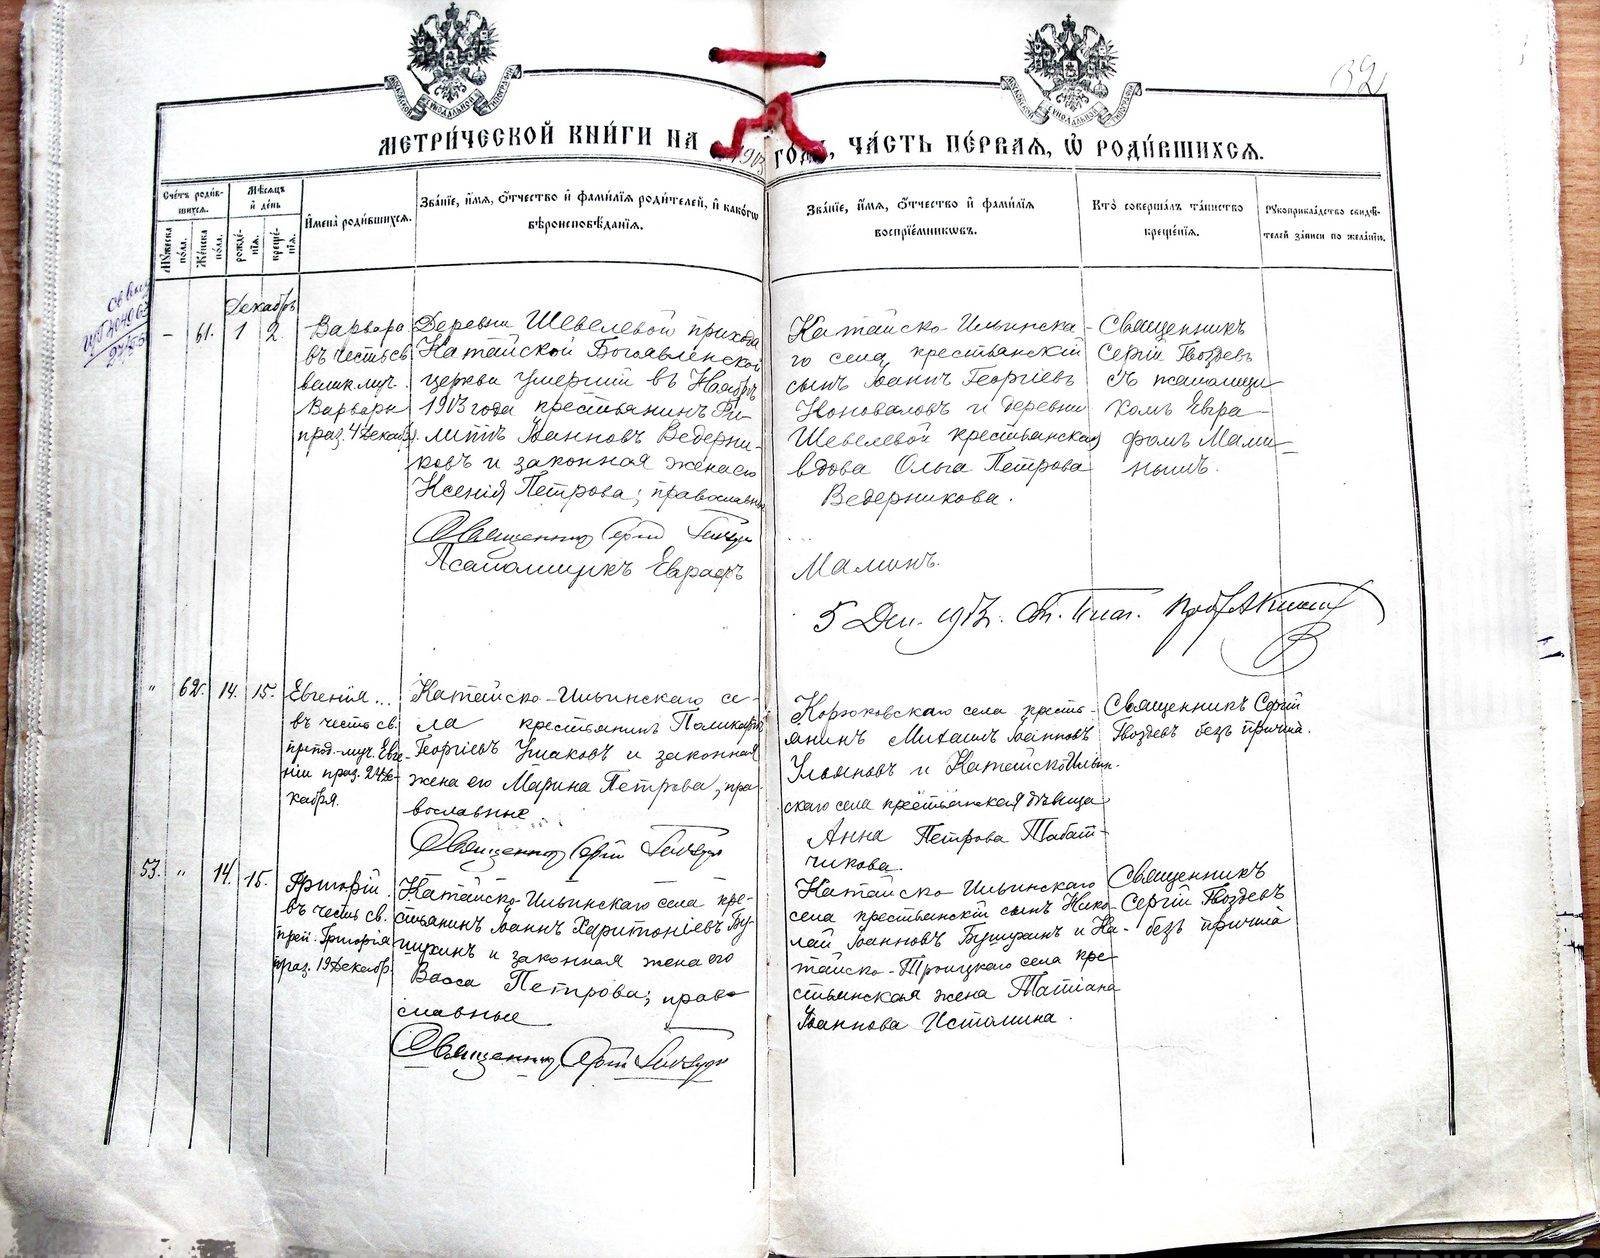 32
МЕТРИЧЕСКОЙ КНИГИ НА 1913 ГОДЪ, ЧАСТЬ ПЕРВАЯ, Ѡ РОДИВШИХСЯ.
Счетъ родив-
шихся.
Мѣсяцъ
и день
Мужеска
пола.
Женска
пола.
рожде-
нія.
креще-
нія.
Имена родившихся.
Званіе, имя, отчество и фамилія родителей, и какогѡ
вѣроисповѣданія.
Званіе, имя, отчество и фамилія
воспріемникѡвъ.
Кто совершалъ таинство
крещенія.
Рукоприкладство свидѣ-
телей записи по желанію.
Декабрь
– 61. 1 2.
Варвара
въ честь св
великмуч.
Варвары
праз. 4 Декаб.
Деревни Шевелевой прихода
Катайской Богоявленской
церкви умерший въ Ноябрѣ
1913 года крестьянинъ Фи-
липпъ Іоанновъ Ведерни-
ковъ и законная жена его
Ксенія Петрова; православные
Священникъ Сергій Гвоздевъ
Псаломщикъ Евграфъ
Катайско-Ильинска-
го села крестьянскій
сынъ Іоаннъ Георгіевъ
Коноваловъ и деревни
Шевелевой крестьянская
вдова Ольга Петрова
Ведерникова.
Маминъ.
5 Дек. 1913.
Священникъ
Сергій Гвоздевъ
съ псаломщи
комъ Евгра-
фомъ Мами-
нымъ.
" 62. 14. 15.
Евгенія...
въ честь св.
препод-муч. Евге-
ніи праз. 24 Де-
кабря.
Катайско-Ильинскаго се-
ла крестьянинъ Поликарпъ
Георгіевъ Ушаковъ и законная
жена его Марина Петрова; пра-
вославные
Священникъ Сергій Гвоздевъ
Корюковскаго села кресть-
янинъ Михаилъ Іоанновъ
Ульяновъ и Катайско Ильин-
скаго села крестьянская дѣвица
Анна Петрова Табат-
чикова.
Священникъ Сергій
Гвоздевъ безъ причта.
53. " 14. 15.
Григорій
въ честь св.
преп. Григорія
праз. 19 Декабр.
Катайско-Ильинскаго села кре-
стьянинъ Іоаннъ Харитоніевъ Бу-
шухинъ и законная жена его
Васса Петрова; право-
славные
Священникъ Сергій Гвоздевъ
Катайско-Ильинскаго
села крестьянскій сынъ Нико-
лай Іоанновъ Бушухинъ и Ка-
тайско-Троицкаго села кре-
стьянская жена Татіана
Іоаннова Истомина.
Священникъ
Сергій Гвоздевъ
безъ причта